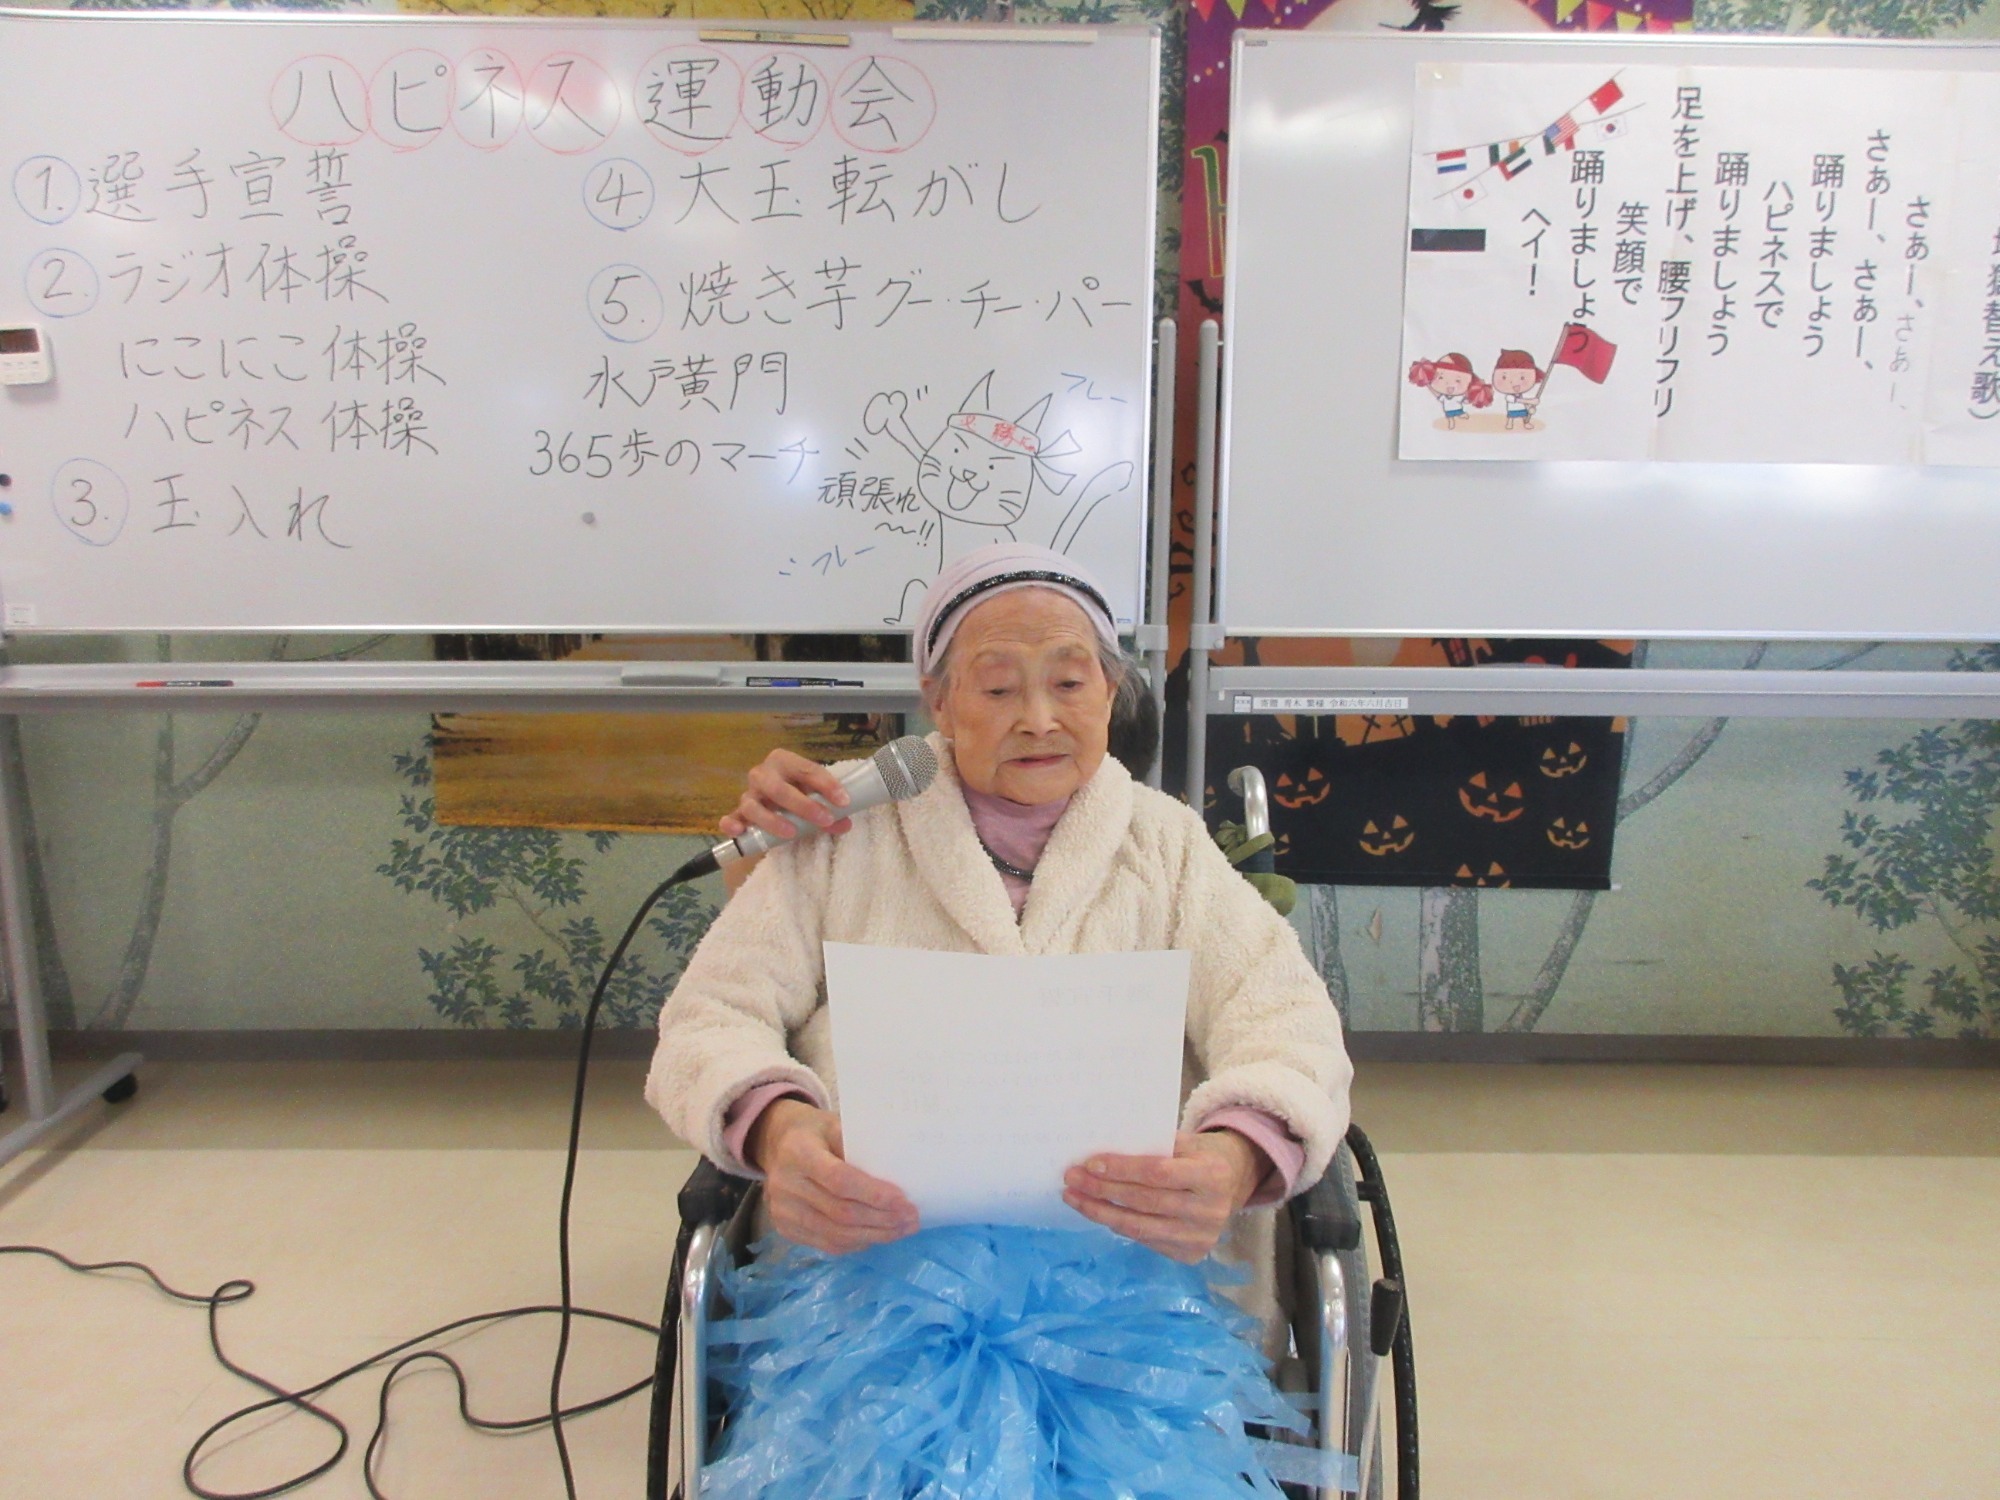 ハピネス運動会
1. 選手宣誓
2. ラジオ体操
にこにこ体操
ハピネス体操
3. 玉入れ
4. 大玉転がし
5. 焼き芋グー・チー・パー
水戸黄門
365歩のマーチ
フレー
必勝
頑張れ
〜!!
フレー
替え歌)
さぁー、さぁー、
さぁー、さぁー、
踊りましょう
ハピネスで
踊りましょう
足を上げ、腰フリフリ
笑顔で
踊りましょう
ヘイ!
令和六年六月吉日